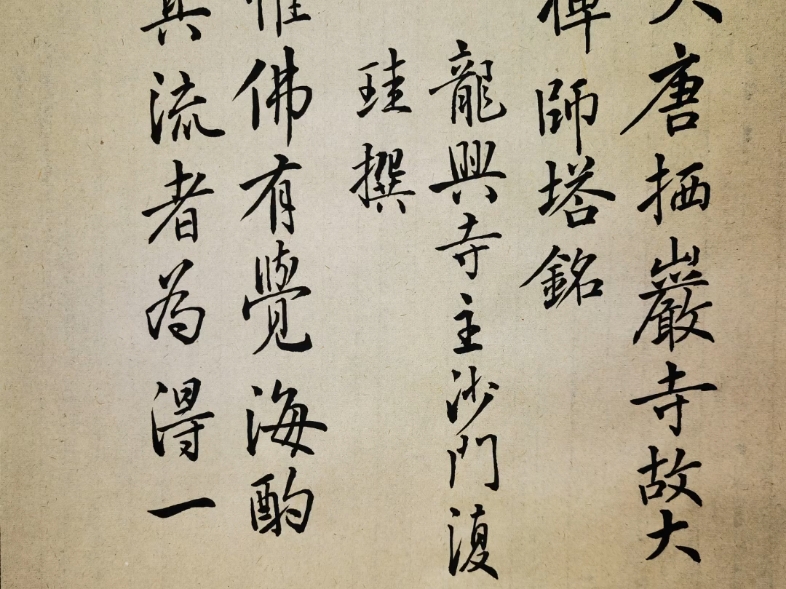 大唐栖巖寺故大
禪師塔銘
龍興寺主沙門復
珪撰
惟佛有覺海酌
其流者為得一